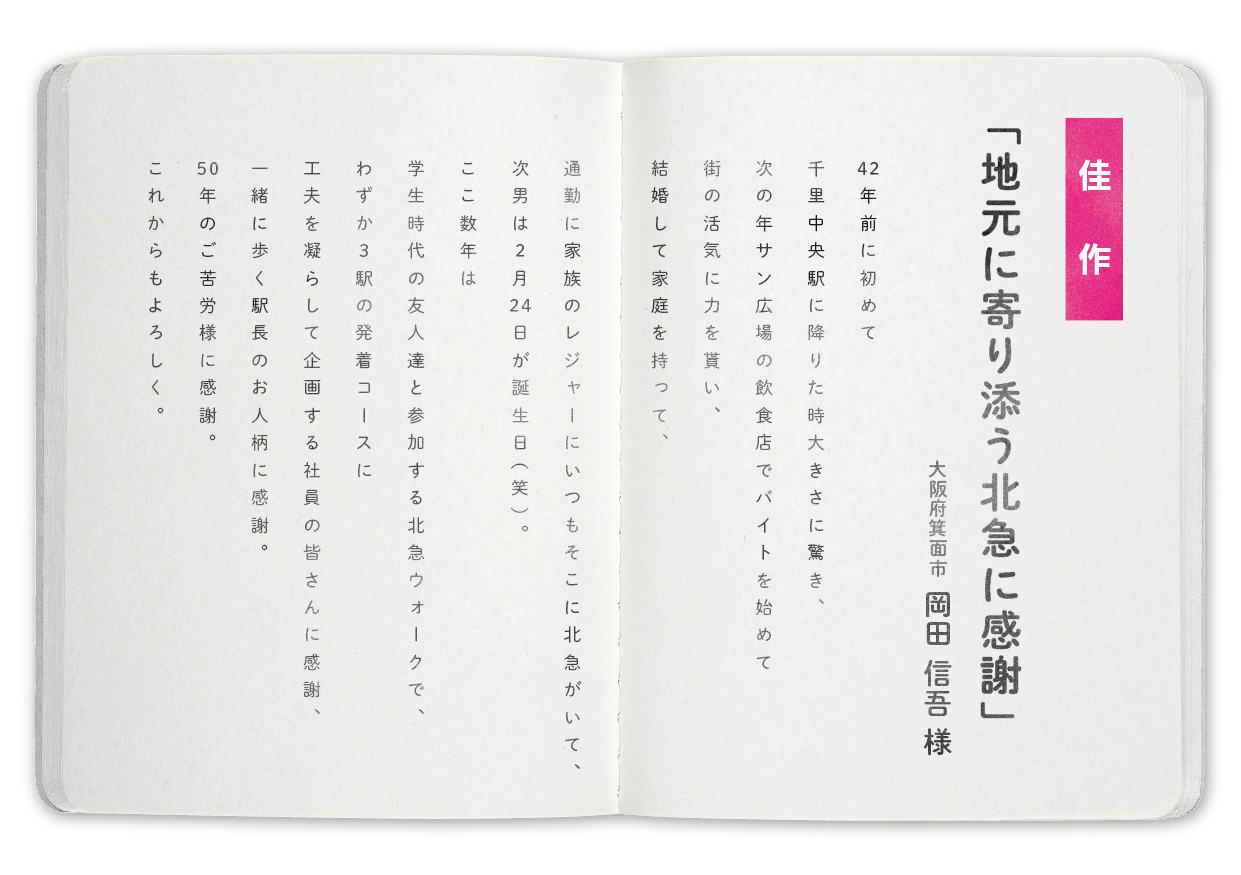 佳作
「地元に寄り添う北急に感謝」
大阪府箕面市 岡田 信吾 様
42年前に初めて
千里中央駅に降りた時大きさに驚き、
次の年サン広場の飲食店でバイトを始めて
街の活気に力を貰い、
結婚して家庭を持って、
通勤に家族のレジャーにいつもそこに北急がいて、
次男は2月24日が誕生日(笑)。
ここ数年は
学生時代の友人達と参加する北急ウォークで、
わずか3駅の発着コースに
工夫を凝らして企画する社員の皆さんに感謝、
一緒に歩く駅長のお人柄に感謝。
50年のご苦労様に感謝。
これからもよろしく。